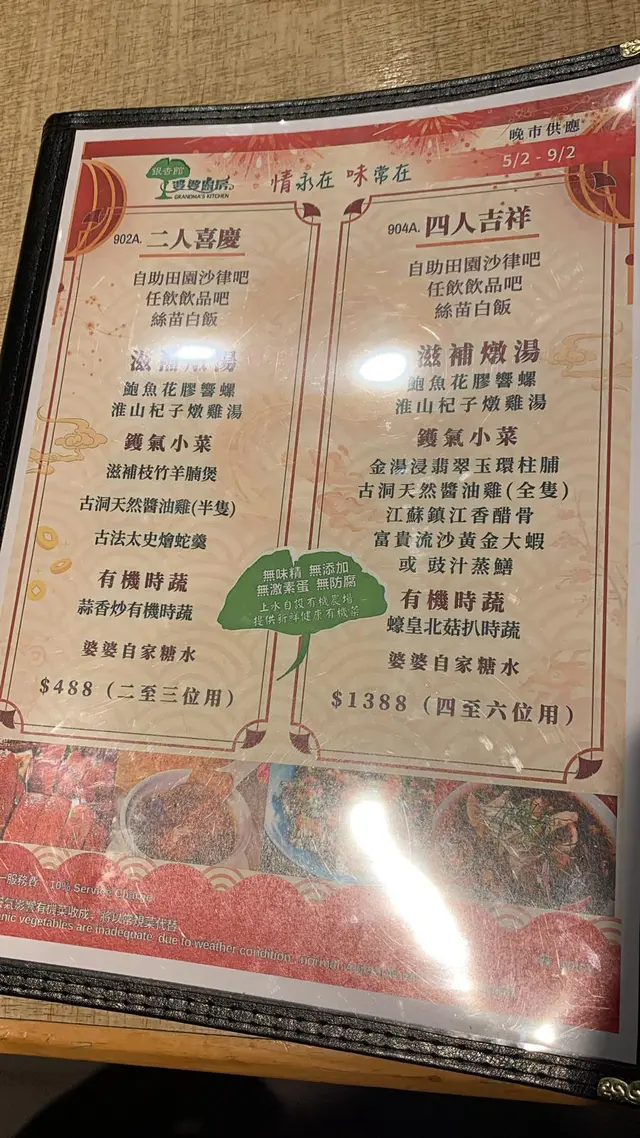 晚市供應
5/2 - 9/2
銀杏館
婆婆廚房
GRANDMA'S KITCHEN
情永在 味常在
902A. 二人喜慶
自助田園沙律吧
任飲飲品吧
絲苗白飯
滋補燉湯
鮑魚花膠響螺
淮山杞子燉雞湯
鑊氣小菜
滋補枝竹羊腩煲
古洞天然醬油雞(半隻)
古法太史燴蛇羹
有機時蔬
蒜香炒有機時蔬
婆婆自家糖水
$488 (二至三位用)
904A. 四人吉祥
自助田園沙律吧
任飲飲品吧
絲苗白飯
滋補燉湯
鮑魚花膠響螺
淮山杞子燉雞湯
鑊氣小菜
金湯浸翡翠玉環柱脯
古洞天然醬油雞(全隻)
江蘇鎮江香醋骨
富貴流沙黃金大蝦
或 豉汁蒸鱔
有機時蔬
蠔皇北菇扒時蔬
婆婆自家糖水
$1388 (四至六位用)
無味精 無添加
無激素蛋 無防腐
上水自設有機農場
提供新鮮健康有機菜
一服務費 10% Service Charge
氣影響有機菜收成，將以常規菜代替
nic vegetables are inadequate due to weather condition, normal